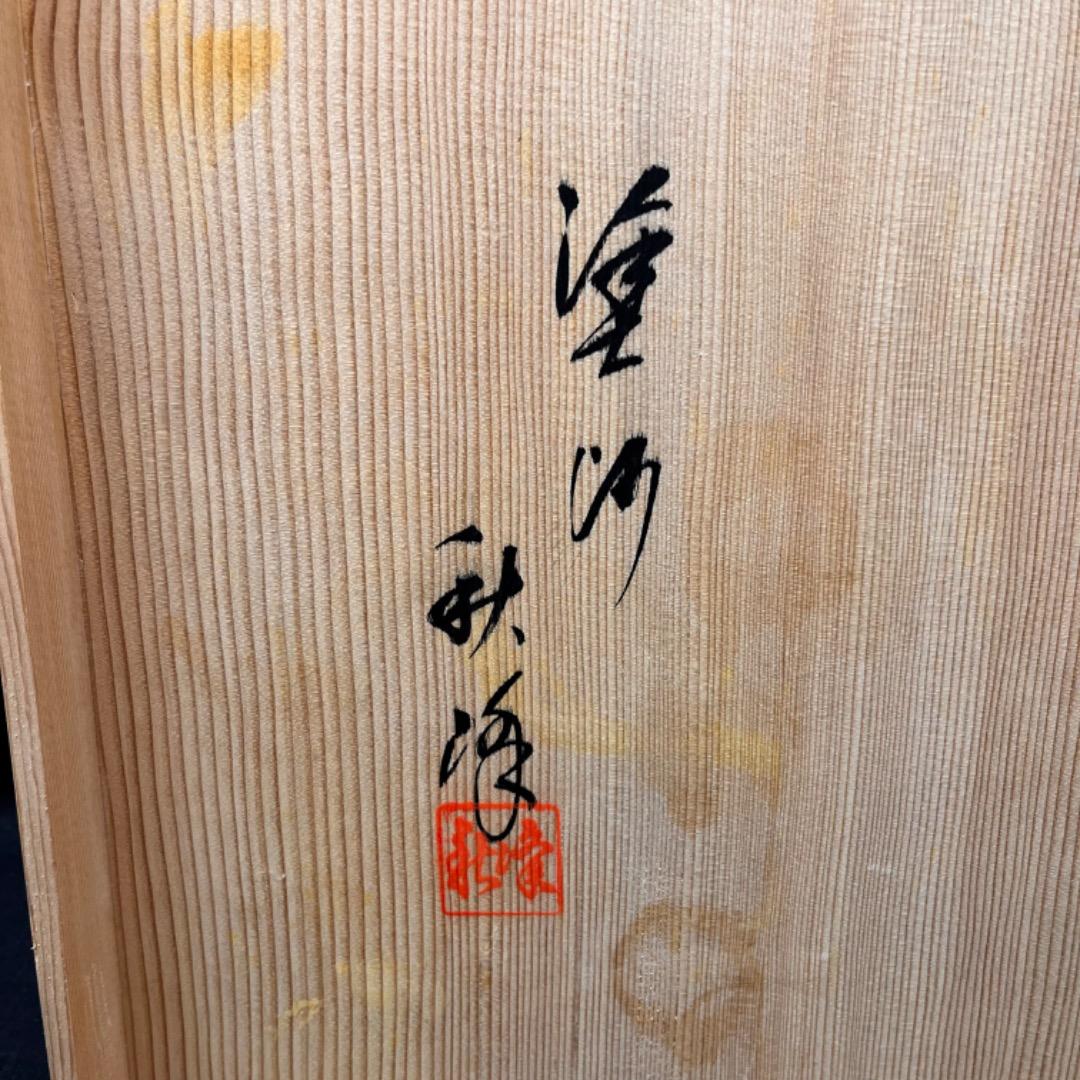 塗师
秋峰
秋峰